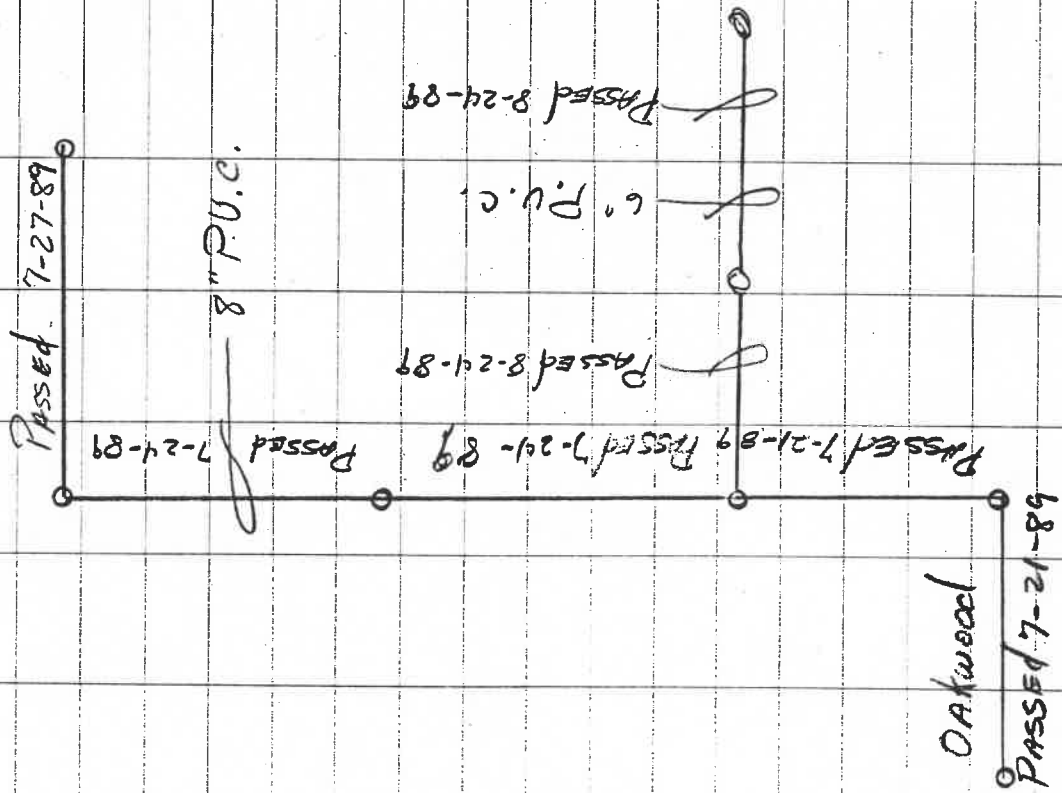 Passed 7-27-89
8" P.V.C.
Passed 7-24-89
Passed 7-24-89
Passed 7-21-89
Passed 8-24-89
6" P.V.C.
Passed 8-24-89
Oakwood
Passed 7-21-89